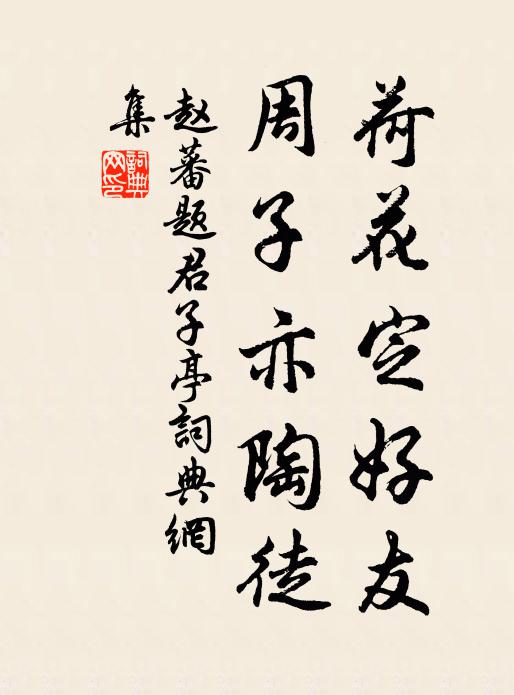 荷花定好友
周子亦陶徒
赵蕃题君子亭詞典網
集
詞典
网印